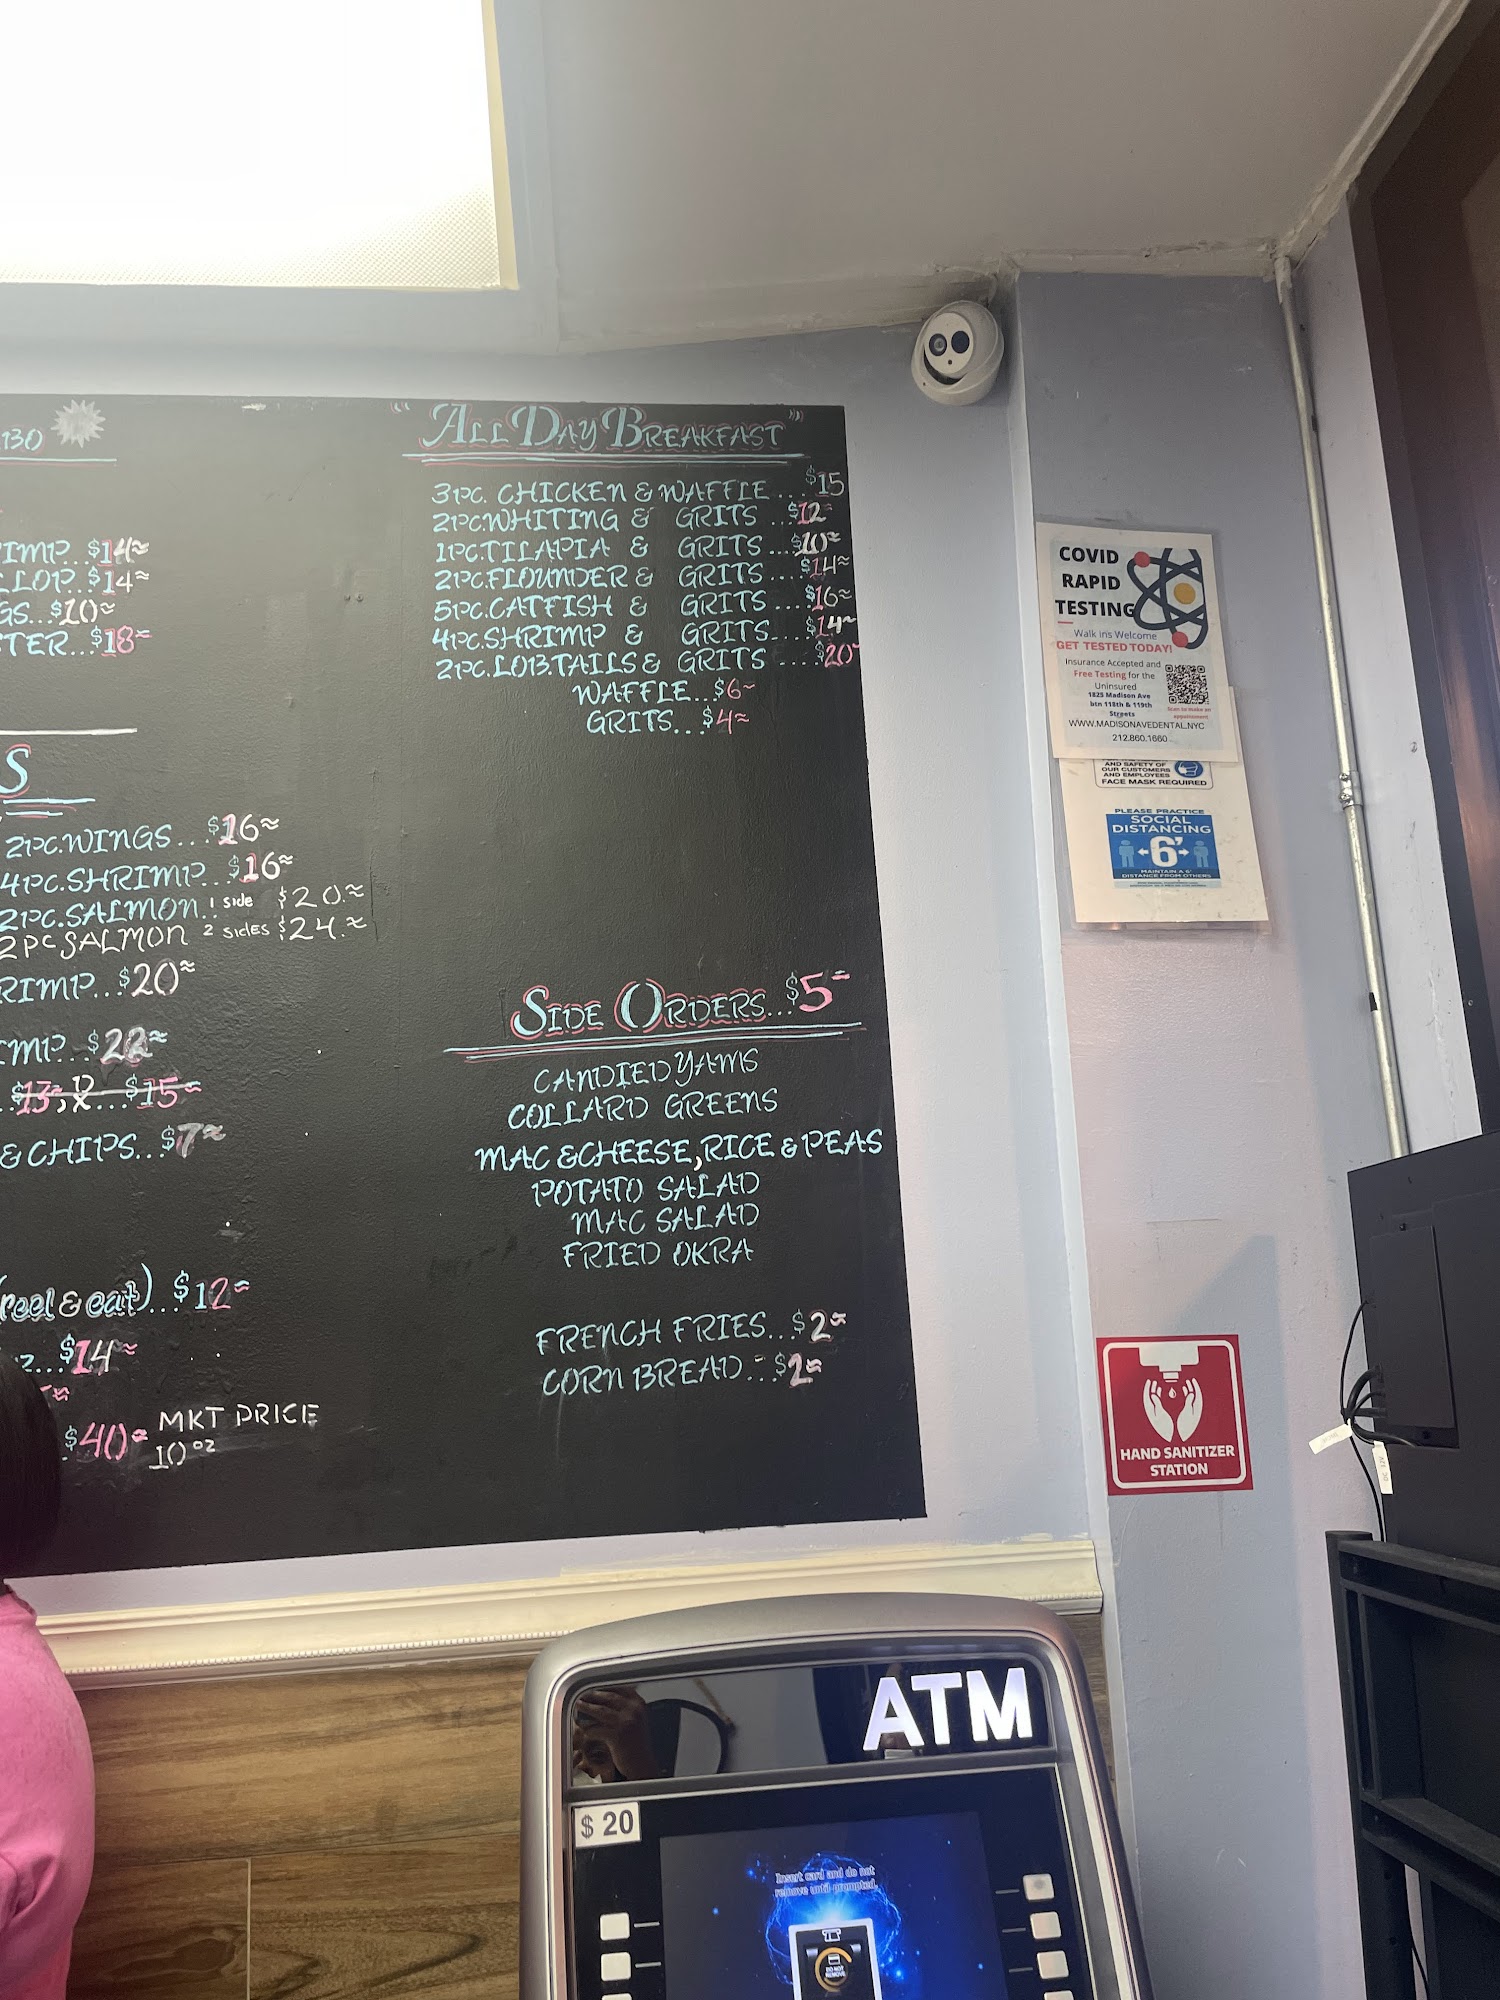 130
IMP..$14
LLOP.$14
GS...$10
TER...$18
S
2PC.WINGS...$16
4PC.SHRIMP...$16
2PC.SALMON.. 1 side $20.
2PC SALMON 2 sides $24.
RIMP...$20
IMP...$22
..$13, ...$15
& CHIPS...$7
reel & eat)...$12
z...$14
$40 MKT PRICE
10 oz
"ALL DAY BREAKFAST"
3PC. CHICKEN & WAFFLE...$15
2PC.WHITING & GRITS...$12
1PC.TILAPIA & GRITS...$10
2PC.FLOUNDER & GRITS....$14
5PC.CATFISH & GRITS....$16
4PC.SHRIMP & GRITS....$14
2PC.LOB.TAILS & GRITS....$20
WAFFLE...$6
GRITS...$4
SIDE ORDERS...$5
CANDIED YAMS
COLLARD GREENS
MAC & CHEESE, RICE & PEAS
POTATO SALAD
MAC SALAD
FRIED OKRA
FRENCH FRIES...$2
CORN BREAD...$2
COVID
RAPID
TESTING
Walk ins Welcome
GET TESTED TODAY!
Insurance Accepted and
Free Testing for the
Uninsured
1825 Madison Ave
btn 118th & 119th
Streets
Scan to make an
appointment
WWW.MADISONAVEDENTAL.NYC
212.860.1660
AND SAFETY OF
OUR CUSTOMERS
AND EMPLOYEES
FACE MASK REQUIRED
PLEASE PRACTICE
SOCIAL
DISTANCING
6'
MAINTAIN A 6'
DISTANCE FROM OTHERS
HAND SANITIZER
STATION
ATM
$ 20
Insert card and do not
remove until prompted.
DO NOT
REMOVE